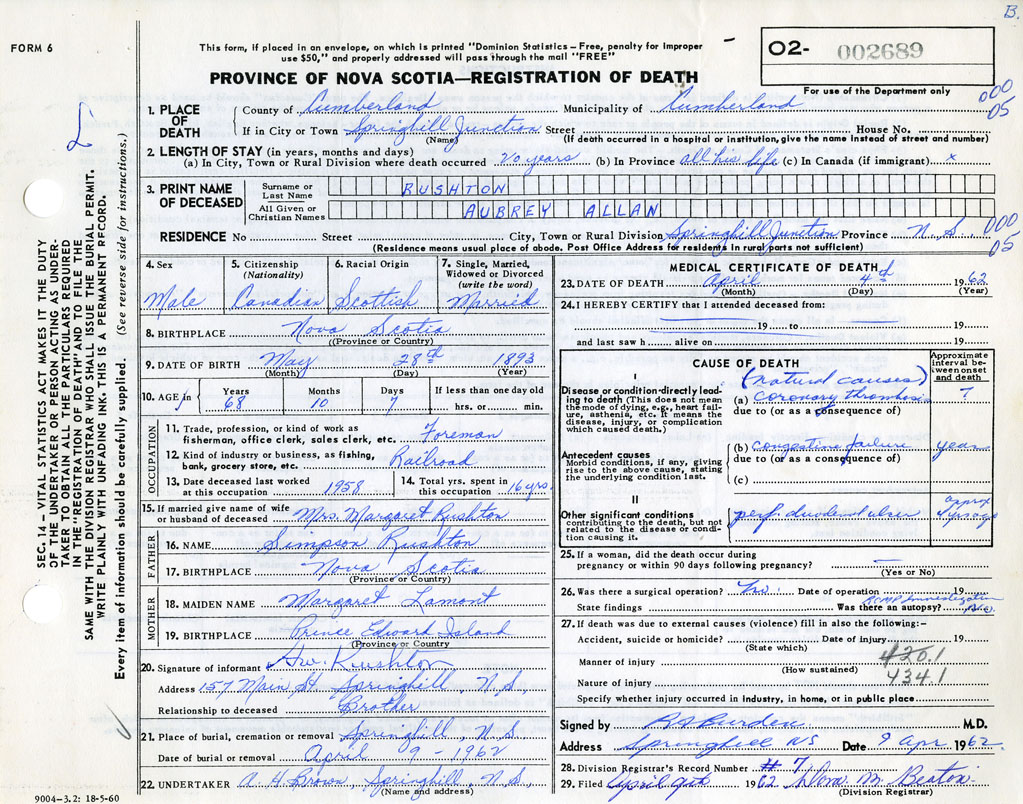 B.
FORM 6
This form, if placed in an envelope, on which is printed "Dominion Statistics – Free, penalty for improper
use $50," and properly addressed will pass through the mail "FREE"
O2- 002689
For use of the Department only
PROVINCE OF NOVA SCOTIA—REGISTRATION OF DEATH
1. PLACE OF DEATH
County of Cumberland Municipality of Cumberland 000
05
If in City or Town Springhill Junction Street House No.
(Name) (If death occurred in a hospital or institution, give the name instead of street and number)
2. LENGTH OF STAY (in years, months and days)
(a) In City, Town or Rural Division where death occurred 20 years (b) In Province all his life (c) In Canada (if immigrant) x
3. PRINT NAME OF DECEASED
Surname or Last Name RUSHTON
All Given or Christian Names AUBREY ALLAN
RESIDENCE No Street City, Town or Rural Division Springhill Junction Province N.S. 000
05
(Residence means usual place of abode. Post Office Address for residents in rural parts not sufficient)
SEC. 14—VITAL STATISTICS ACT MAKES IT THE DUTY
OF THE UNDERTAKER OR PERSON ACTING AS UNDER-
TAKER TO OBTAIN ALL THE PARTICULARS REQUIRED
IN THE "REGISTRATION OF DEATH" AND TO FILE THE
SAME WITH THE DIVISION REGISTRAR WHO SHALL ISSUE THE BURIAL PERMIT.
WRITE PLAINLY WITH UNFADING INK. THIS IS A PERMANENT RECORD.
Every item of information should be carefully supplied. (See reverse side for instructions.)
4. Sex
Male
5. Citizenship
(Nationality)
Canadian
6. Racial Origin
Scottish
7. Single, Married,
Widowed or Divorced
(write the word)
Married
8. BIRTHPLACE Nova Scotia
(Province or Country)
9. DATE OF BIRTH May 28th 1893
(Month) (Day) (Year)
10. AGE in Years Months Days If less than one day old
68 10 7 hrs. or min.
OCCUPATION
11. Trade, profession, or kind of work as
fisherman, office clerk, sales clerk, etc. Foreman
12. Kind of industry or business, as fishing,
bank, grocery store, etc. Railroad
13. Date deceased last worked
at this occupation 1958
14. Total yrs. spent in
this occupation 16 yrs.
15. If married give name of wife
or husband of deceased Mrs. Margaret Rushton
FATHER
16. NAME Simpson Rushton
17. BIRTHPLACE Nova Scotia
(Province or Country)
MOTHER
18. MAIDEN NAME Margaret Lamont
19. BIRTHPLACE Prince Edward Island
(Province or Country)
20. Signature of informant Rushton
Address 157 Main St Springhill, N.S.
Relationship to deceased Brother
21. Place of burial, cremation or removal Springhill, N.S.
Date of burial or removal April 9 - 1962
22. UNDERTAKER A. H. Brown, Springhill, N.S.
(Name and address)
9004-3.2: 18-5-60
MEDICAL CERTIFICATE OF DEATH
23. DATE OF DEATH April 4th 1962
(Month) (Day) (Year)
24. I HEREBY CERTIFY that I attended deceased from:
19 to 19
and last saw h alive on 19
CAUSE OF DEATH
Approximate
interval between onset
and death
I
(natural causes)
Disease or condition directly lead-
ing to death (This does not mean
the mode of dying, e.g., heart fail-
ure, asthenia, etc. It means the
disease, injury, or complication
which caused death.)
(a) coronary thrombosis ?
due to (or as a consequence of)
Antecedent causes
Morbid conditions, if any, giving
rise to the above cause, stating
the underlying condition last.
(b) congestive failure years
due to (or as a consequence of)
(c)
II
Other significant conditions
contributing to the death, but not
related to the disease or condi-
tion causing it.
perf. duodenal ulcer
approx
yrs ago
25. If a woman, did the death occur during
pregnancy or within 90 days following pregnancy?
(Yes or No)
26. Was there a surgical operation? No. Date of operation 19
RCMP Investigation
State findings Was there an autopsy? No
27. If death was due to external causes (violence) fill in also the following:-
Accident, suicide or homicide? Date of injury 19
(State which)
Manner of injury 420.1
(How sustained)
Nature of injury 434.1
Specify whether injury occurred in industry, in home, or in public place
Signed by Burden M.D.
Address Springhill NS Date 9 Apr 1962
28. Division Registrar's Record Number # 7
29. Filed April 9th 1962 Dora M. Beaton
(Division Registrar)